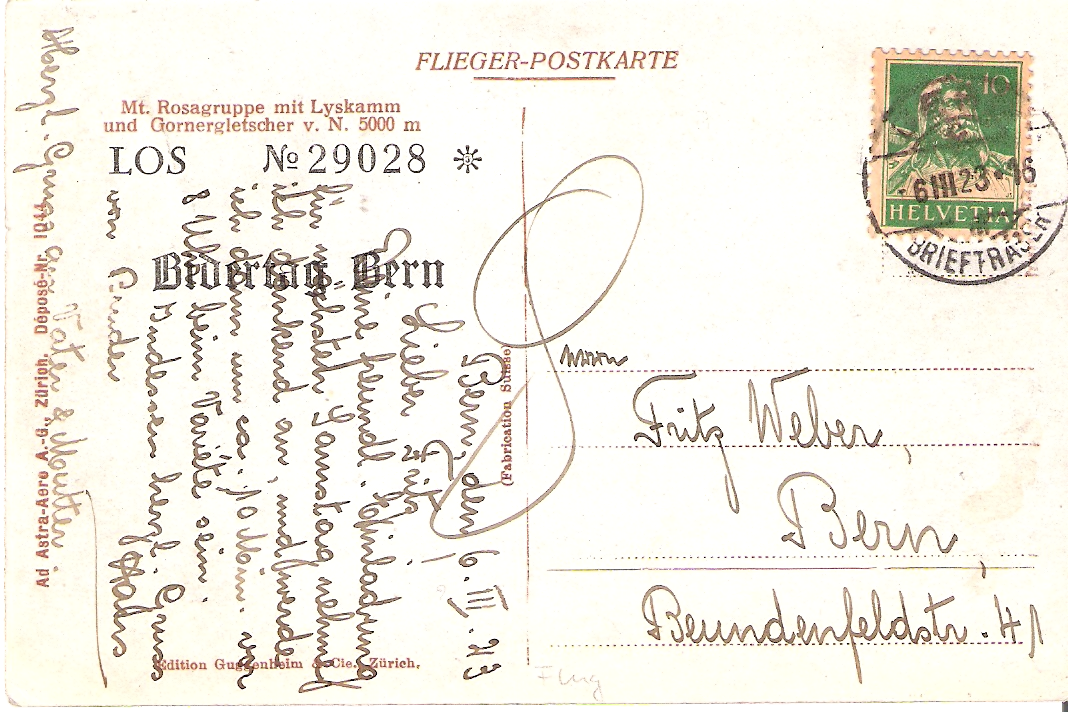 FLIEGER-POSTKARTE
Mt. Rosagruppe mit Lyskamm
und Gornergletscher v. N. 5000 m
LOS № 29028
Bidertag Bern
10
HELVETIA
6 III 23 - 16
BRIEFTRÄGER
Bern, den 6. III. 23
Lieber Fritz!
Deine freundl. Einladung
für nächsten Samstag nehme
ich dankend an, und werde
ich dann um ca. 10 Min. vor
8 Uhr beim Variété sein.
Indessen herzl. Gruss
von Hans
Herzl. Gruss Vater & Mutter.
Fritz Weber,
Bern,
Beundenfeldstr. 41
(Fabrication Suisse)
Ad Astra-Aero A.-G., Zürich. Déposé-Nr. 1044
Edition Guggenheim & Cie., Zürich.
Flug